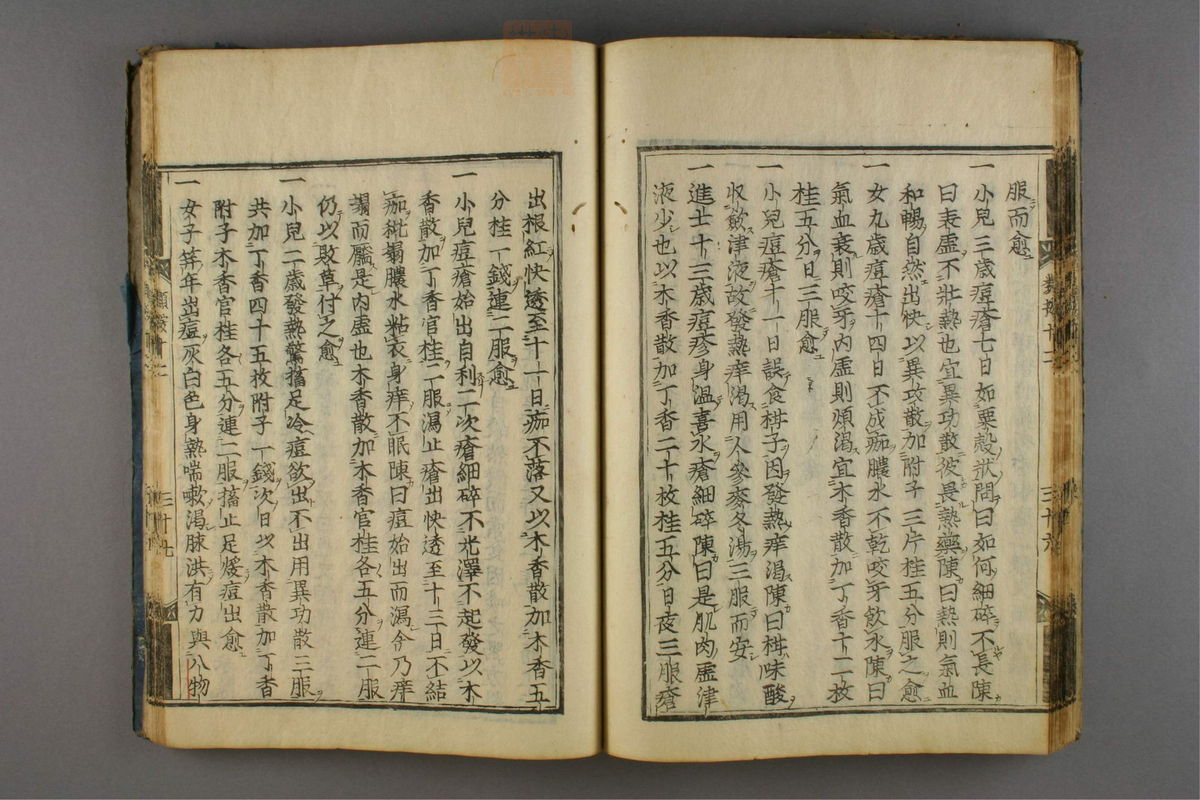 服而愈
一小兒三歳痘瘡七日如粟殼狀問曰如何細碎不長陳
曰表虚不壯熱也宜異功散彼畏熱藥陳曰熱則氣血
和暢自然出快以異攻散加附子三片桂五分服之愈
一女九歳痘瘡十四日不成痂膿水不乾咬牙飲水陳曰
氣血衰則咬牙内虚則煩渇宜木香散加丁香十二枚
桂五分日三服愈
一小兒痘瘡才一日誤食柑子因發熱痒渇陳曰柑味酸
収歛津液故發熱痒渇用人參麥冬湯三服而安
一進士十三歳痘疹身温喜水瘡細碎陳曰是肌肉虚津
液少也以木香散加丁香二十枚桂五分日夜三服瘡
三十六
出根紅快透至十一日痂不落又以木香散加木香五
分桂一錢連二服愈
一小兒痘瘡始出自利二次瘡細碎不光澤不起發以木
香散加丁香官桂二服瀉止瘡出快透至十三日不結
痂枇塌膿水粘衣身痒不眠陳曰痘始出而瀉今乃痒
塌而靨是内虚也木香散加木香官桂各五分連二服
仍以敗草付之愈
一小兒二歳發熱驚搐足冷痘欲出不出用異功散三服
共加丁香四十五枚附子一錢次日以木香散加丁香
附子木香官桂各五分連二服搐止足煖痘出愈
一女子笄年出痘灰白色身熱喘嗽渇脉洪有力與八物
三十七